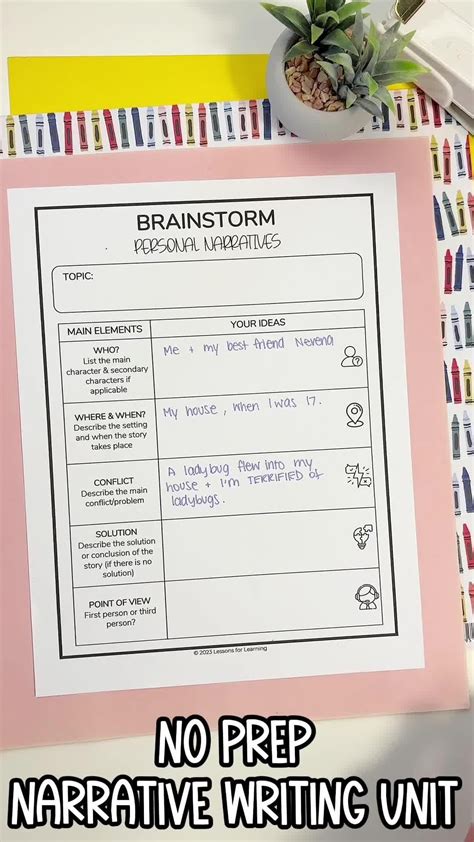 BRAINSTORM
PERSONAL NARRATIVES
TOPIC:
MAIN ELEMENTS
YOUR IDEAS
WHO?
List the main
character & secondary
characters if
applicable
Me + my best friend Nevena
WHERE & WHEN?
Describe the setting
and when the story
takes place
My house, when I was 17.
CONFLICT
Describe the main
conflict/problem
A ladybug flew into my
house + I'm TERRIFIED of
ladybugs.
SOLUTION
Describe the solution
or conclusion of the
story (if there is no
solution)
POINT OF VIEW
First person or third
person?
© 2023 Lessons for Learning
NO PREP
NARRATIVE WRITING UNIT